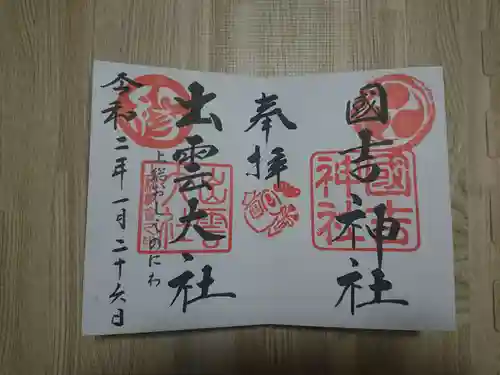 國吉神社
國吉
神社
奉拝
出雲大社
上総かしらのにわ
令和二年一月二十六日